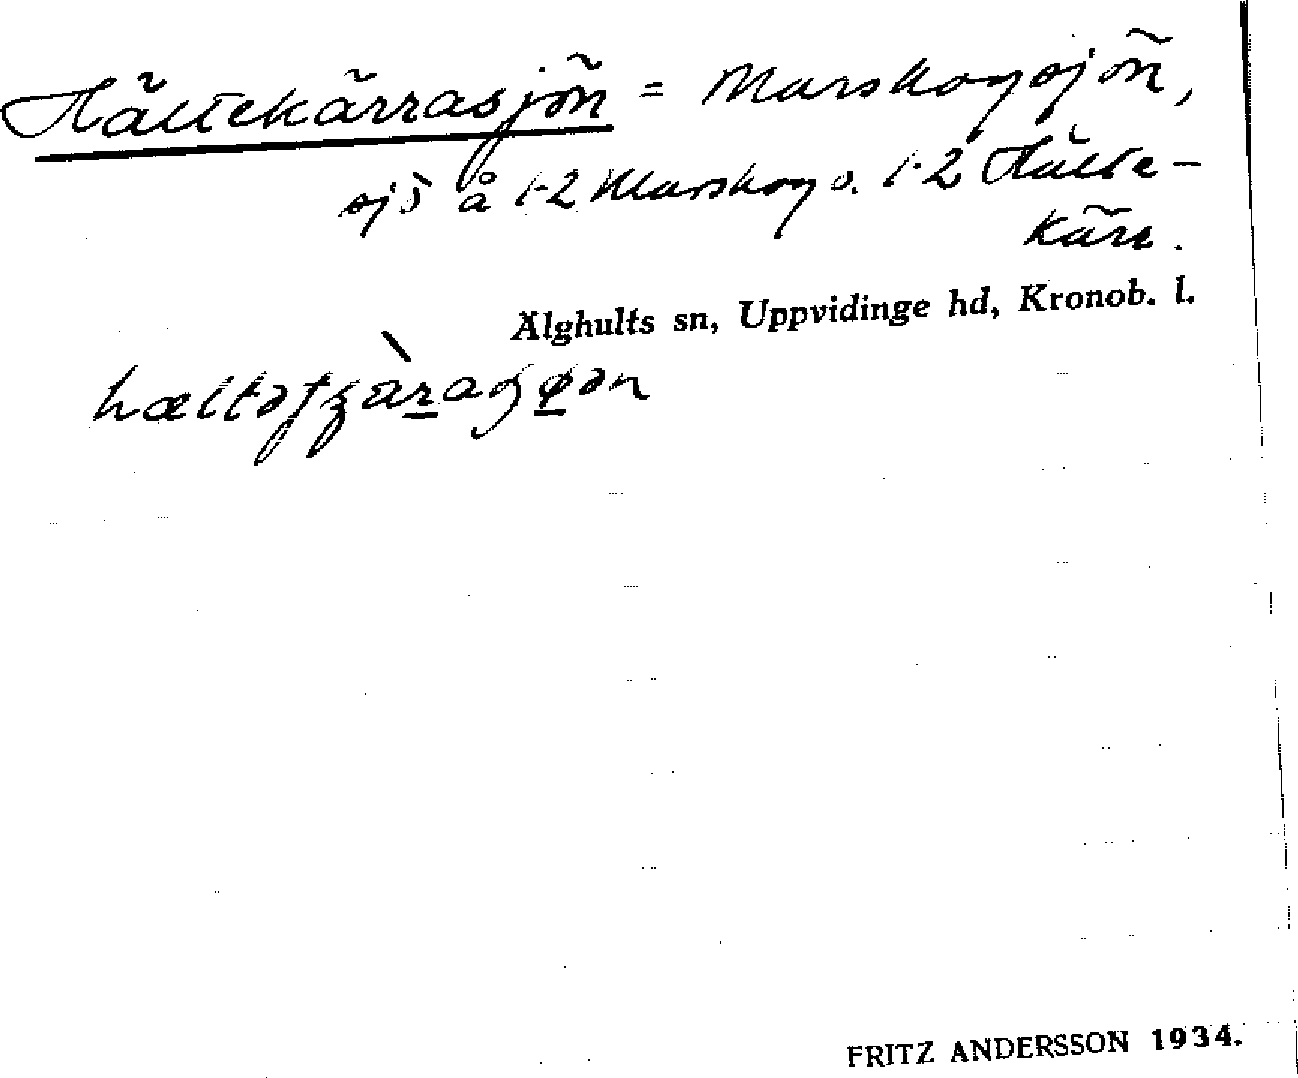 Hältekärrasjön = Marskogsjön,
sjö å 1-2 Marskog o. 1-2 Hälte-
kärr.
Älghults sn, Uppvidinge hd, Kronob. l.
FRITZ ANDERSSON 1934.